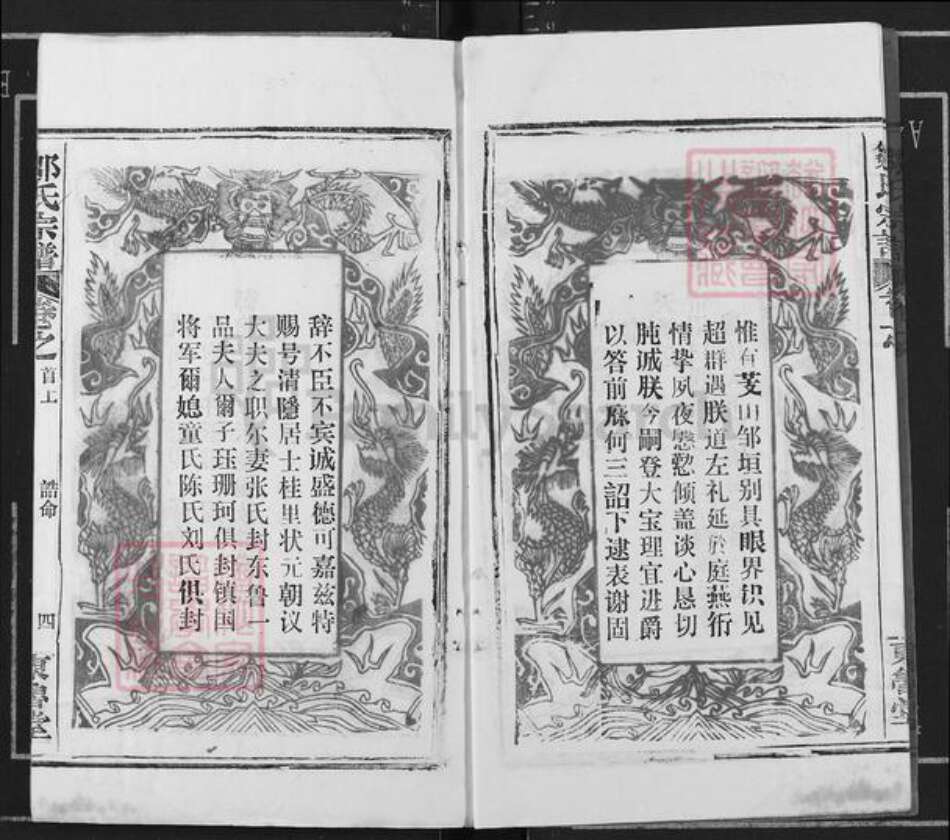 惟有芰山邹垣别具眼界识见
超群遇朕道左礼延於庭燕衎
情挚夙夜慇懃倾盖谈心恳切
肫诚朕今嗣登大宝理宜进爵
以答前庥何三詔下逮表谢固
辞不臣不宾诚盛德可嘉兹特
赐号清隱居士桂里状元朝议
大夫之职尔妻张氏封东鲁一
品夫人爾子珏珊珂俱封镇国
将军爾媳童氏陈氏刘氏俱封
邹氏宗譜
卷之
首上
誥命
四
東魯堂